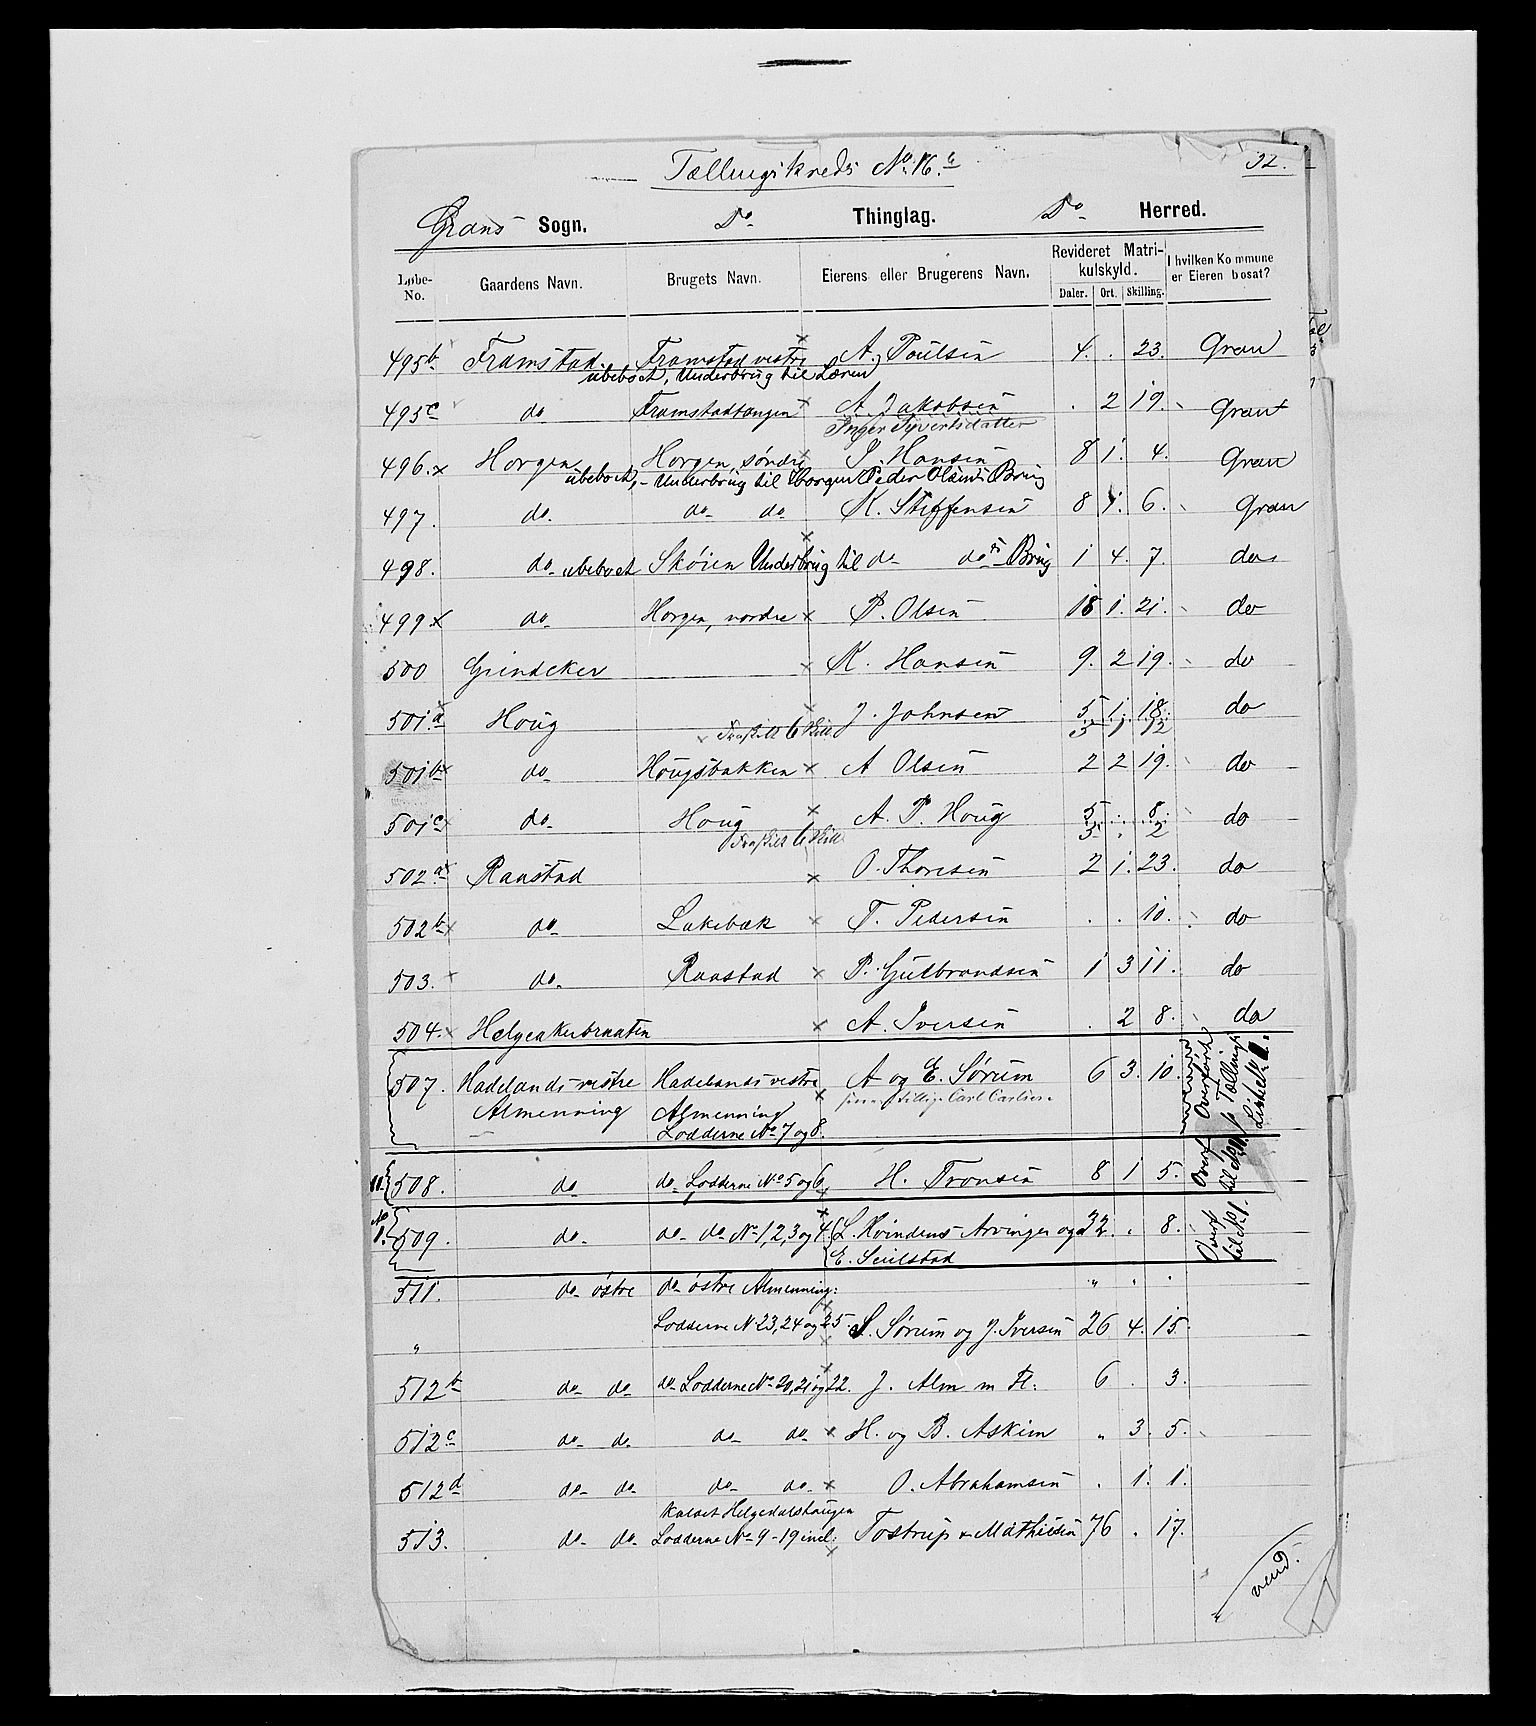 Tællingskreds No. 16.
32.
Grans Sogn. Do Thinglag. Do Herred.
Løbe-No. Gaardens Navn. Brugets Navn. Eierens eller Brugerens Navn. Revideret Matrikulskyld. Daler. Ort. Skilling. I hvilken Kommune er Eieren bosat?
495b Framstad Framstad vestre A. Poulsen 4. . 23. Gran
ubeboet, Underbrug til Læren
495c do Framstadtangen A. Jakobsen . 2 19. Gran
Inger Syvertsdatter
496. Horgen Horgen, søndre J. Hansen 8 1. 4. Gran
ubeboet, - Underbrug til Horgen Peder Olsens Brug
497. do. do. do. K. Steffensen 8 1. 6. Gran
498. do. ubeboet Skóien Underbrug til do do's Brug 1 4. 7. do
499 do Horgen, nordre P. Olsen 18 1. 21. do
500 Grindeker K. Hansen 9. 2 19. do
501.a Houg J. Johnsen 5. 1. 18. do
Fraskilt 6 Skill 5 1 12
501b do. Hougsbakken A Olsen 2 2 19. do
501c do. Houg A. P. Houg 5 . 8. do
Fraskilt 6 Skill 5 . 2
502a Raastad O. Thoresen 2 1. 23. do
502b do. Lakebæk T. Pedersen . . 10. do
503. do. Raastad P. Gulbrandsen 1 3 11. do
504. Helgeakerbraaten A. Iversen . 2 8. do
507. Hadelands vestre Hadelands vestre A og E. Sørum 6 3. 10.
Almenning Almenning Carl Carlsen
Lodderne No 7 og 8.
Overført Tællings
508. do do Lodderne No 5 og 6 H. Tronsen 8 1 5.
Overf
509. do. do do No 1, 2, 3 og 4. L. Kvindens Arvinger og 32. . 8.
E. Seielstad
Overf til No 1.
511. do østre do østre Almenning:
" Lodderne No 23, 24 og 25 S. Sørum og J. Iversen 26 4. 15.
512b do do do Lodderne No 20, 21 og 22. J. Alm m Fl. 6 . 3.
512c do do do do H. og B. Askim " 3. 5.
512d do do do do O. Abrahamsen . 1. 1.
kaldet Helgedalshaugen
513. do do Lodderne No 9 - 19 incl. Tostrup & Mathiesen 76 . 17.
vend.